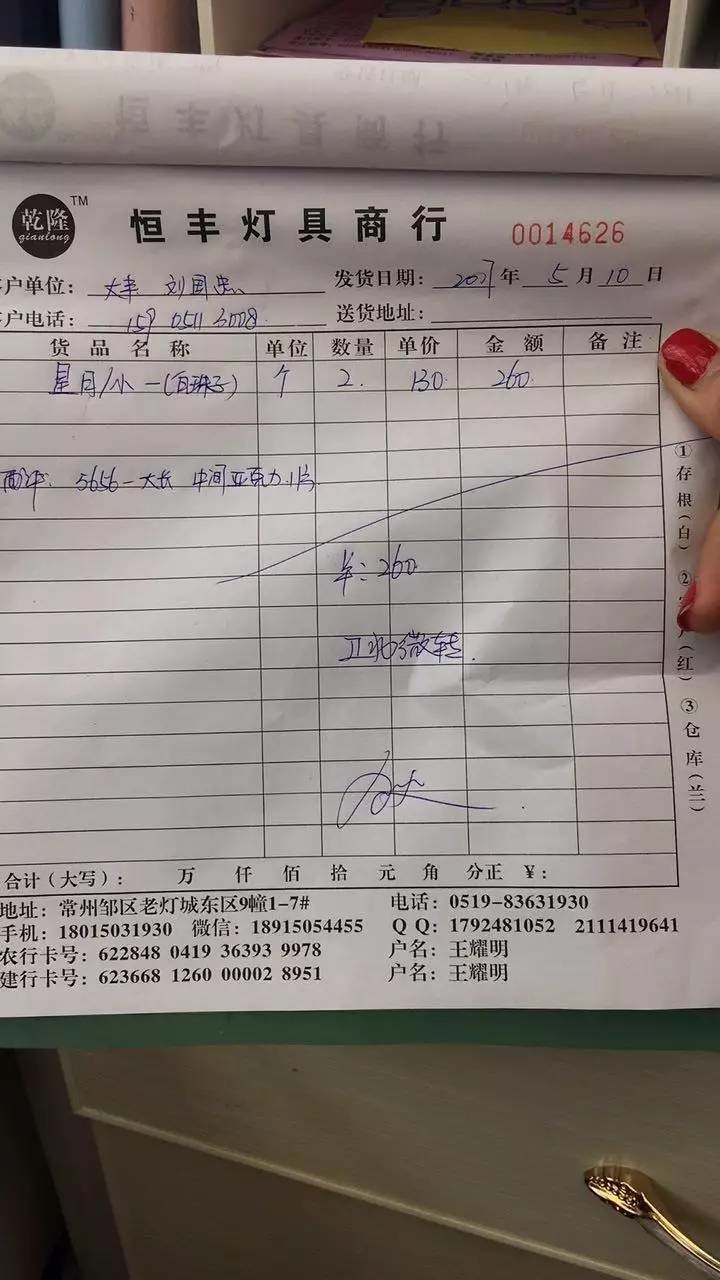 恒丰灯具商行
乾隆 TM qianlong
恒丰灯具商行 0014626
客户单位: 大丰 刘国忠 发货日期: 年 5 月 10 日
客户电话: 159 0511 3008 送货地址:
货品名称 单位 数量 单价 金额 备注
星月/小一(白珠子) 个 2. 130. 260.
配件: 5656-大长 中间亚克力 1片
¥: 260
①存根(白) ②客户(红) ③仓库(兰)
合计(大写): 万 仟 佰 拾 元 角 分正 ¥:
地址: 常州邹区老灯城东区9幢1-7# 电话: 0519-83631930
手机: 18015031930 微信: 18915054455 QQ: 1792481052 2111419641
农行卡号: 622848 0419 36393 9978 户名: 王耀明
建行卡号: 623668 1260 00002 8951 户名: 王耀明